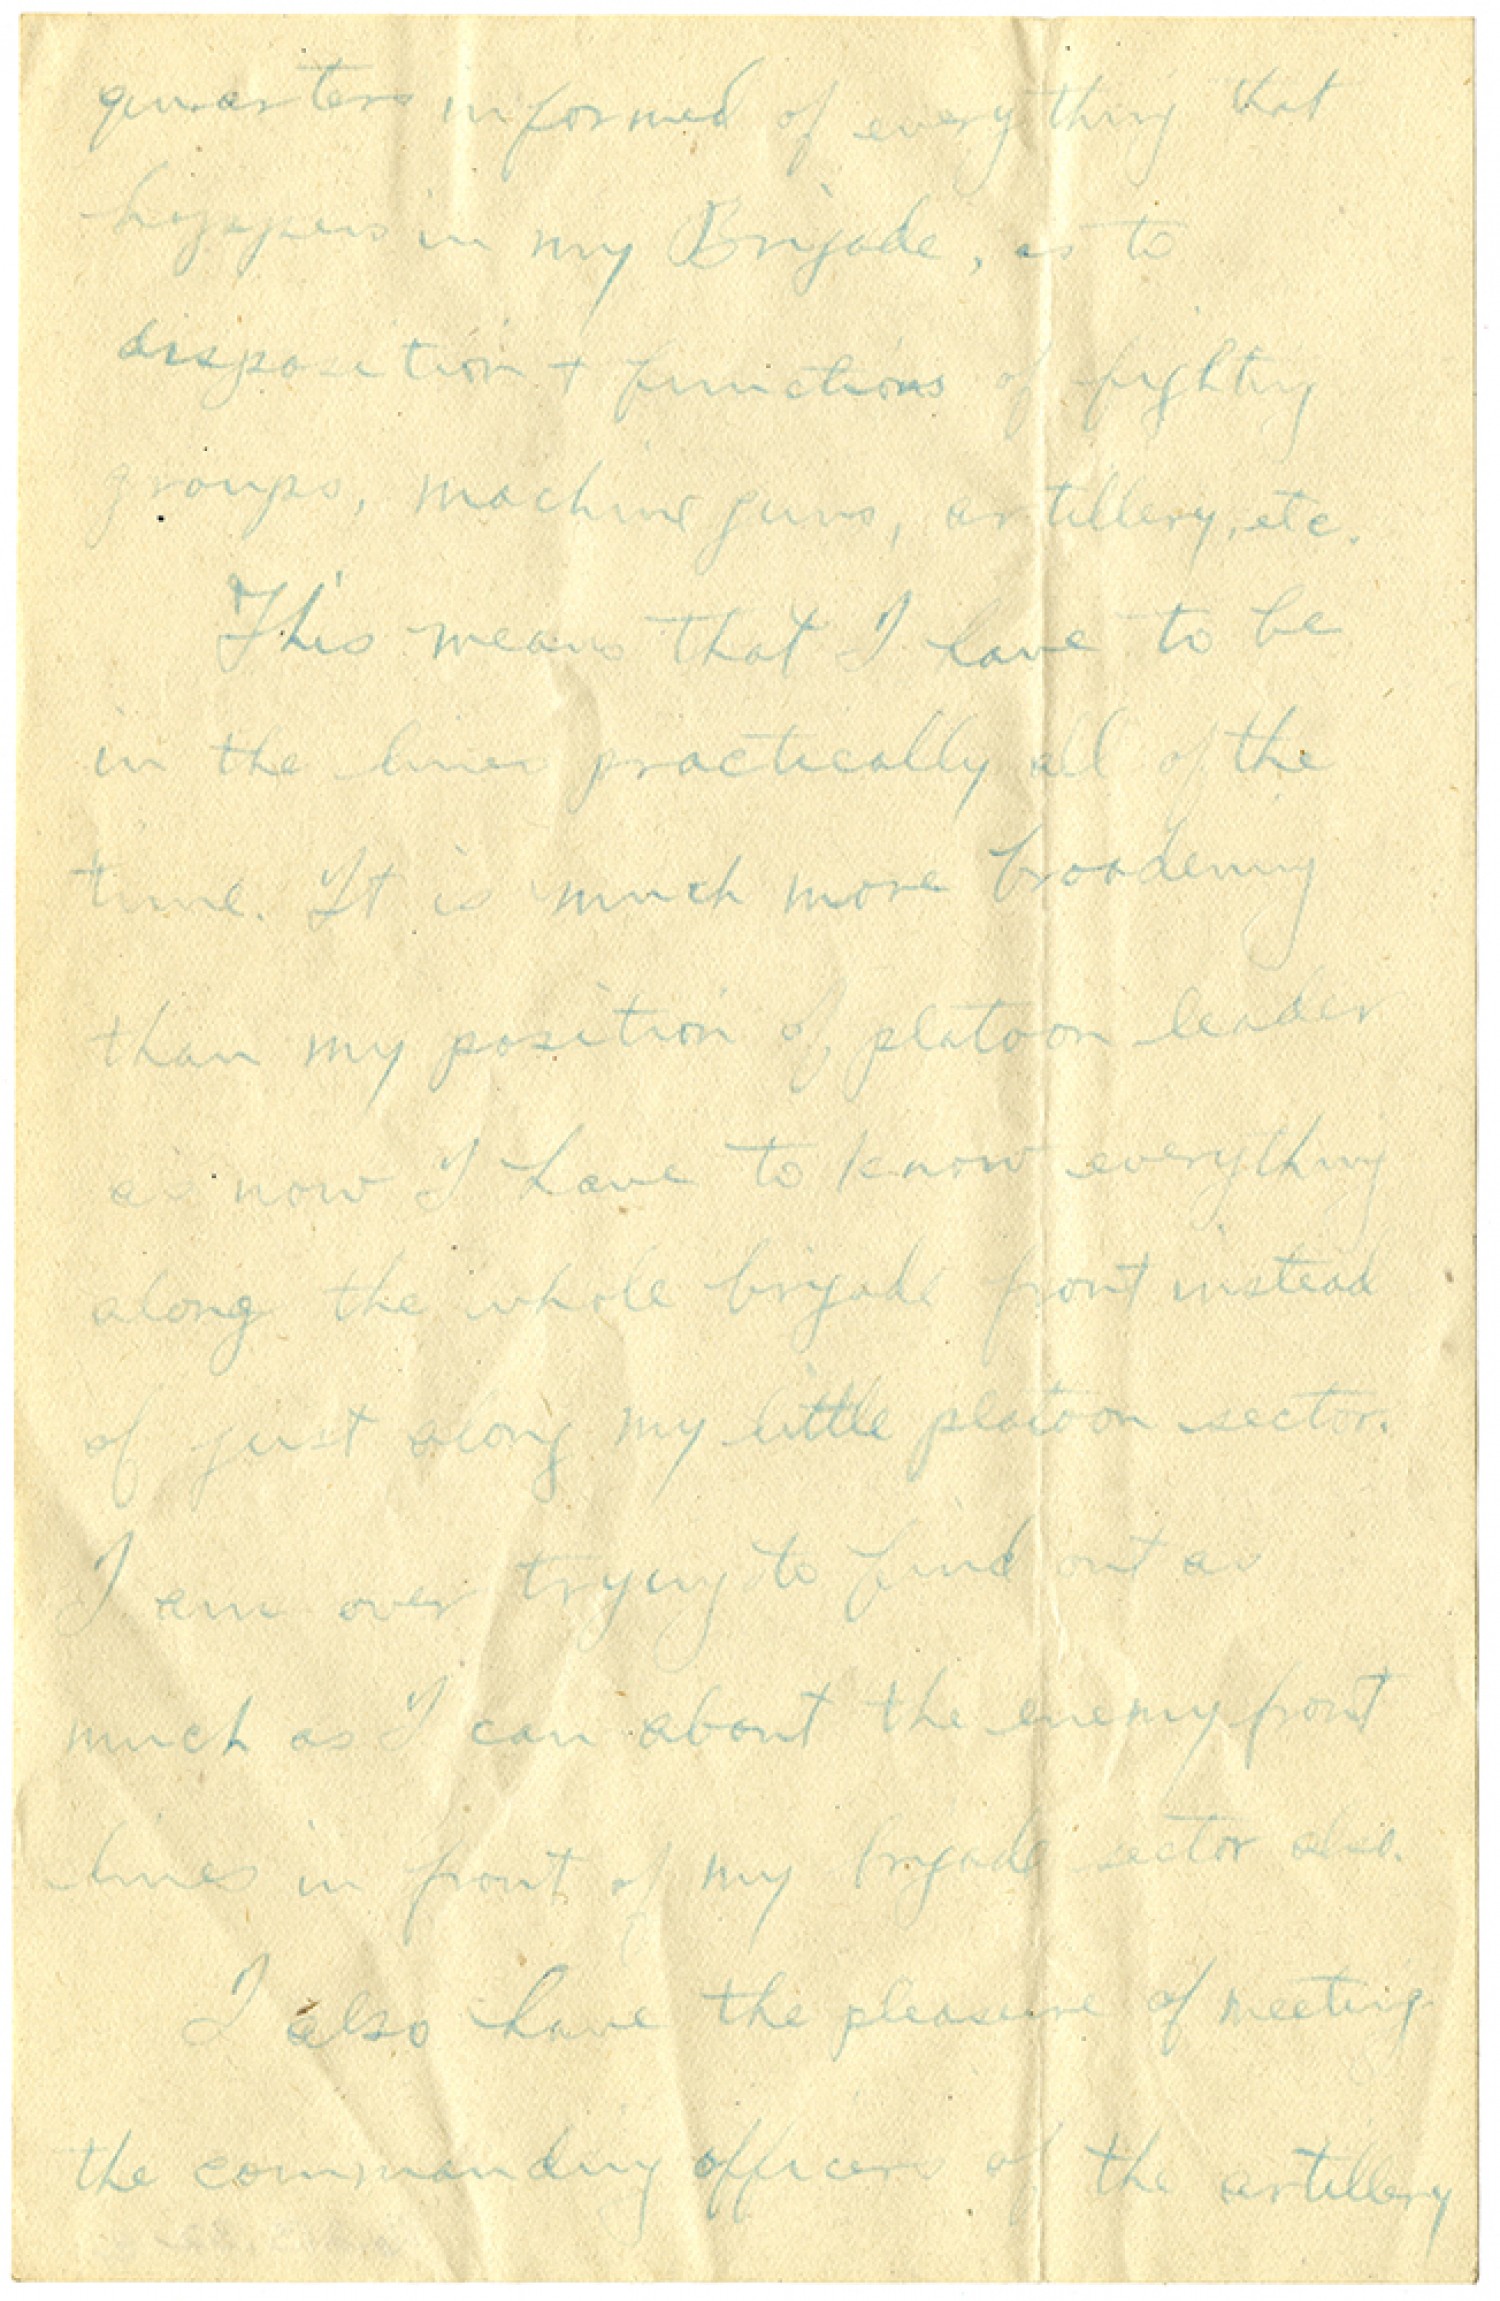 quarters informed of everything that
happens in my Brigade, as to
disposition + functions of fighting
groups, machine guns, artillery, etc.
This means that I have to be
in the lines practically all of the
time. It is much more broadening
than my position of platoon leader
as now I have to know everything
along the whole brigade front instead
of just along my little platoon sector.
I am over trying to find out as
much as I can about the enemy front
lines in front of my brigade sector also.
I also have the pleasure of meeting
the commanding officers of the artillery